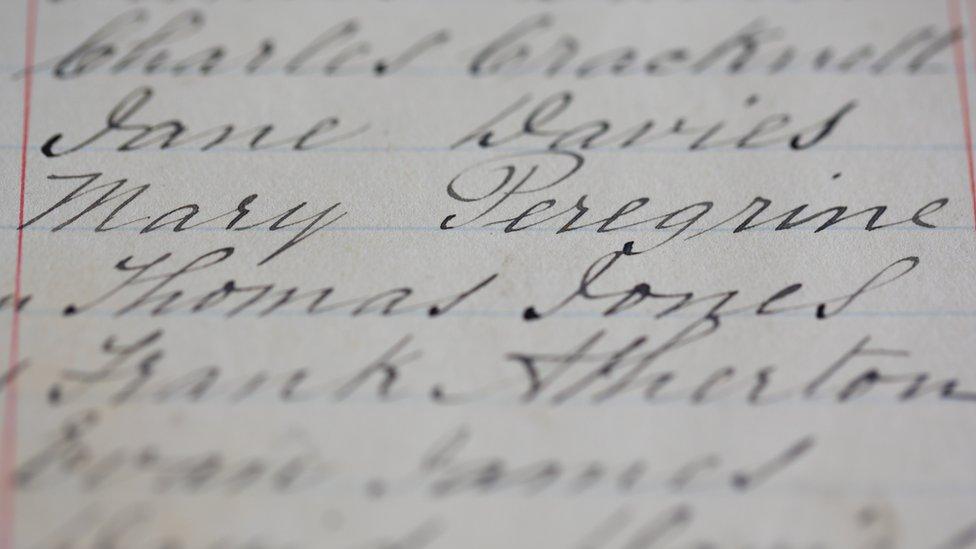 Charles Cracknell
Jane Davies
Mary Peregrine
Thomas Jones
Frank Atherton
Evan James